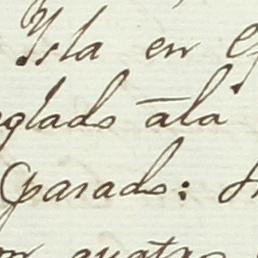 Ysla en
glado ā la
pasado:
on quatro